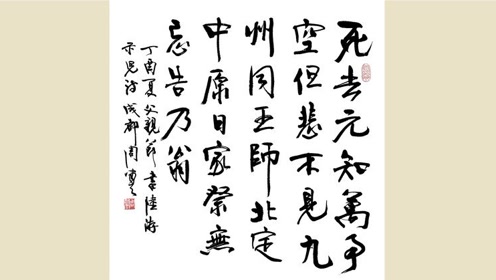 死去元知萬事
空但悲不見九
州同王師北定
中原日家祭無
忘告乃翁
丁酉夏父親節書陸游
示兒詩成都周